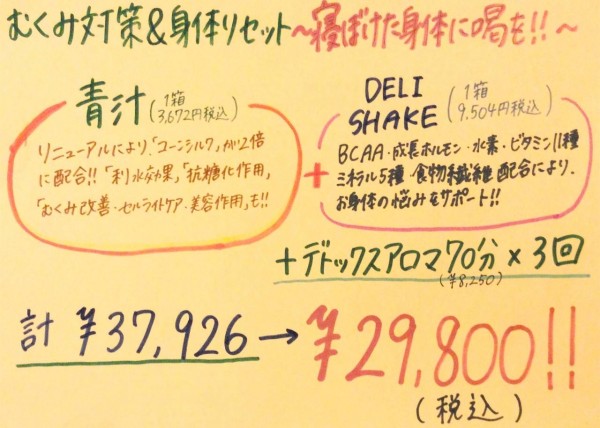 むくみ対策&身体リセット～寝ぼけた身体に喝を!!～
青汁(1箱 3,672円税込)
リニューアルにより、「コーンシルク」が12倍
に配合!!「利水効果」「抗糖化作用」
「むくみ改善・セルライトケア・美容作用」も!!
+
DELI
SHAKE(1箱 9,504円税込)
BCAA・成長ホルモン・水素・ビタミン11種
ミネラル5種・食物繊維配合により、
お身体の悩みをサポート!!
+デトックスアロマ70分×3回
(¥8,250)
計 ¥37,926→¥29,800!!
(税込)